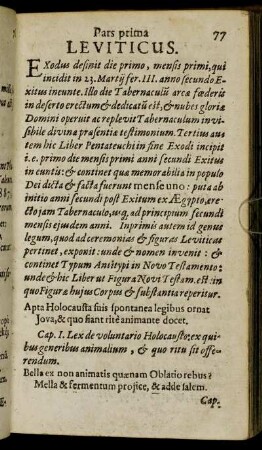 Pars prima 77
LEVITICUS.
EXodus desinit die primo, mensis primi, qui
incidit in 23. Martij fer. III. anno secundo E-
xitus ineunte. Illo die Tabernaculū arca fœderis
in deserto erectum & dedicatū est, & nubes gloriæ
Domini operuit ac replevit Tabernaculum invi-
sibile divinæ præsentiæ testimonium. Tertius au-
tem hic Liber Pentateuchi in fine Exodi incipit
i. e. primo die mensis primi anni secundi Exitus
in euntis: & continet quæ memorabilia in populo
Dei dicta & facta fuerunt mense uno: puta ab
initio anni secundi post Exitum ex Ægypto, ere-
cto jam Tabernaculo, usq; ad principium secundi
mensis ejusdem anni. Inprimis autem id genus
legum, quod ad ceremonias & figuras Leviticas
pertinet, exponit: unde & nomen invenit: &
continet Typum Antitypi in Novo Testamento:
unde & hic Liber ut Figura Novi Testam. est: in
quo Figuræ hujus Corpus & substantia reperitur.
Apta Holocausta suis spontanea legibus ornat
Jova, & quo fiant ritè animante docet.
Cap. I. Lex de voluntario Holocausto: ex qui-
bus generibus animalium, & quo ritu sit offe-
rendum.
Bella ex non animatis quænam Oblatio rebus?
Mella & fermentum projice, & adde salem.
Cap.